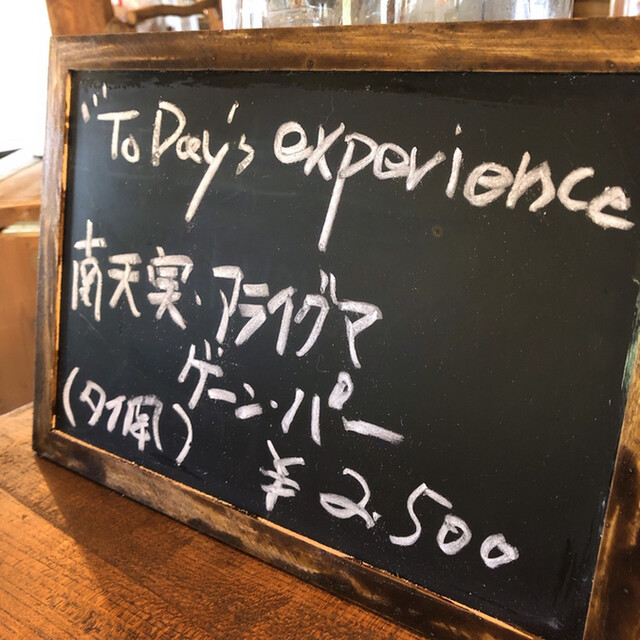 "ToDay's experience
南天実・アライグマ
ゲーン・パー
(タイ風)
¥2,500